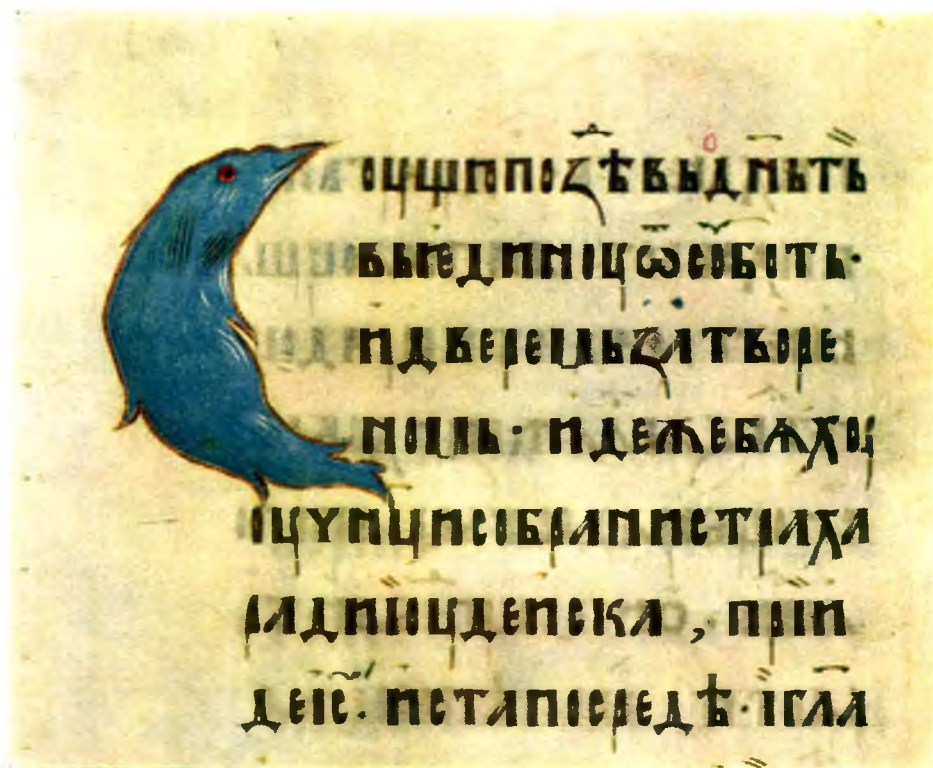 Соущипоꙁⷣѣвьдн҃ьть
вьѥдиноуѿсоботь·
идверемьꙁатворе
номь· идежебѧхоу
оучнцисобранистраха
радииоудеиска , прїи
деіс҃. истапосредѣ·їгл҃а